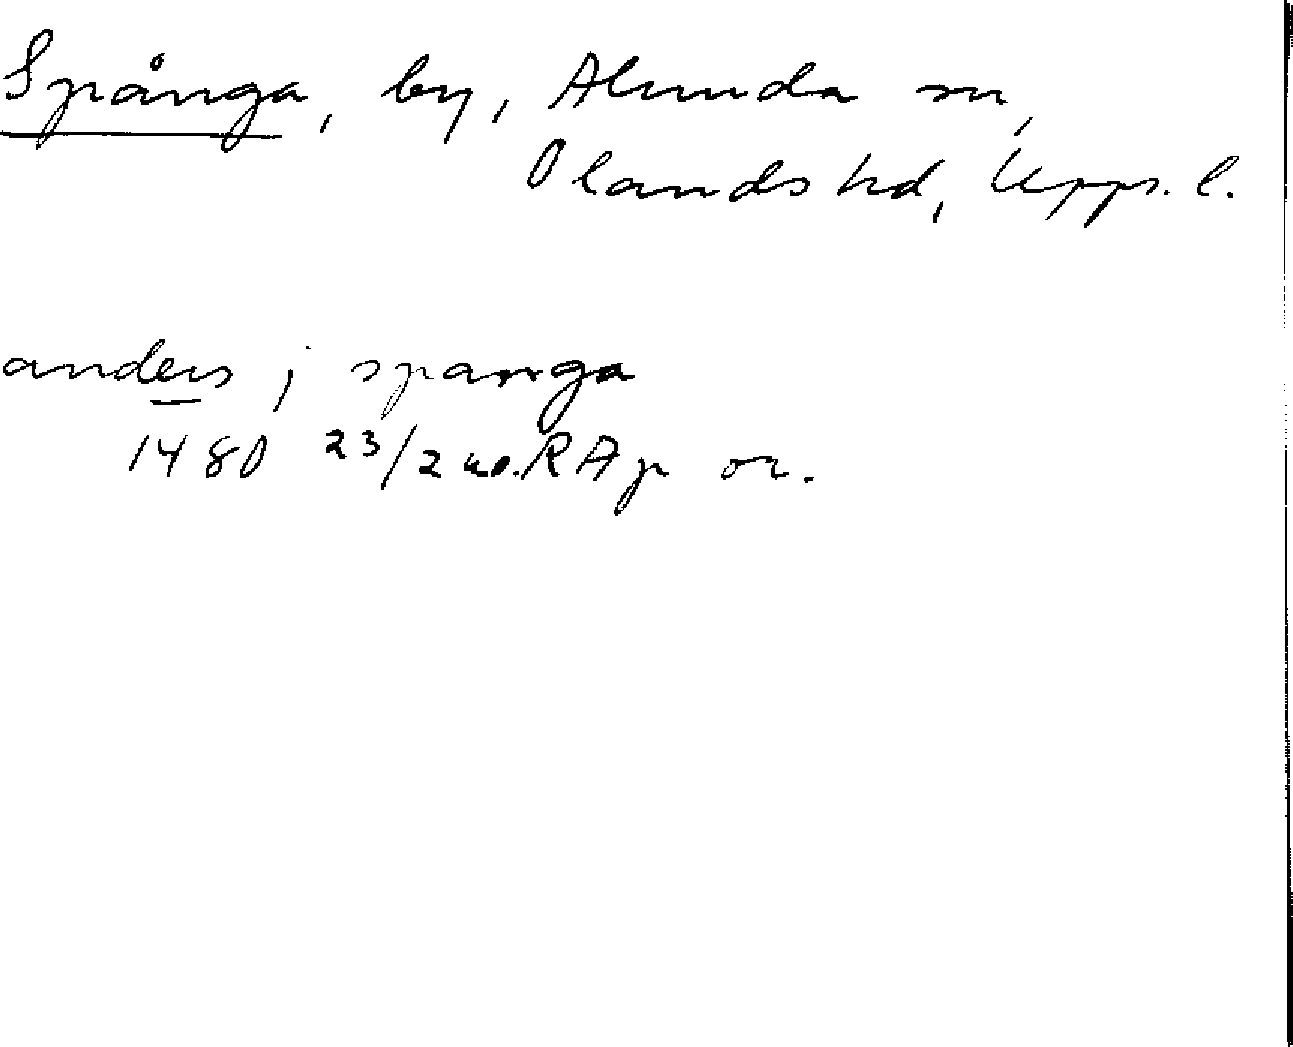 Spånga, by, Alunda sn,
Olands hd, Upps. l.
anders j spanga
1480 23/2 uo. RAp or.